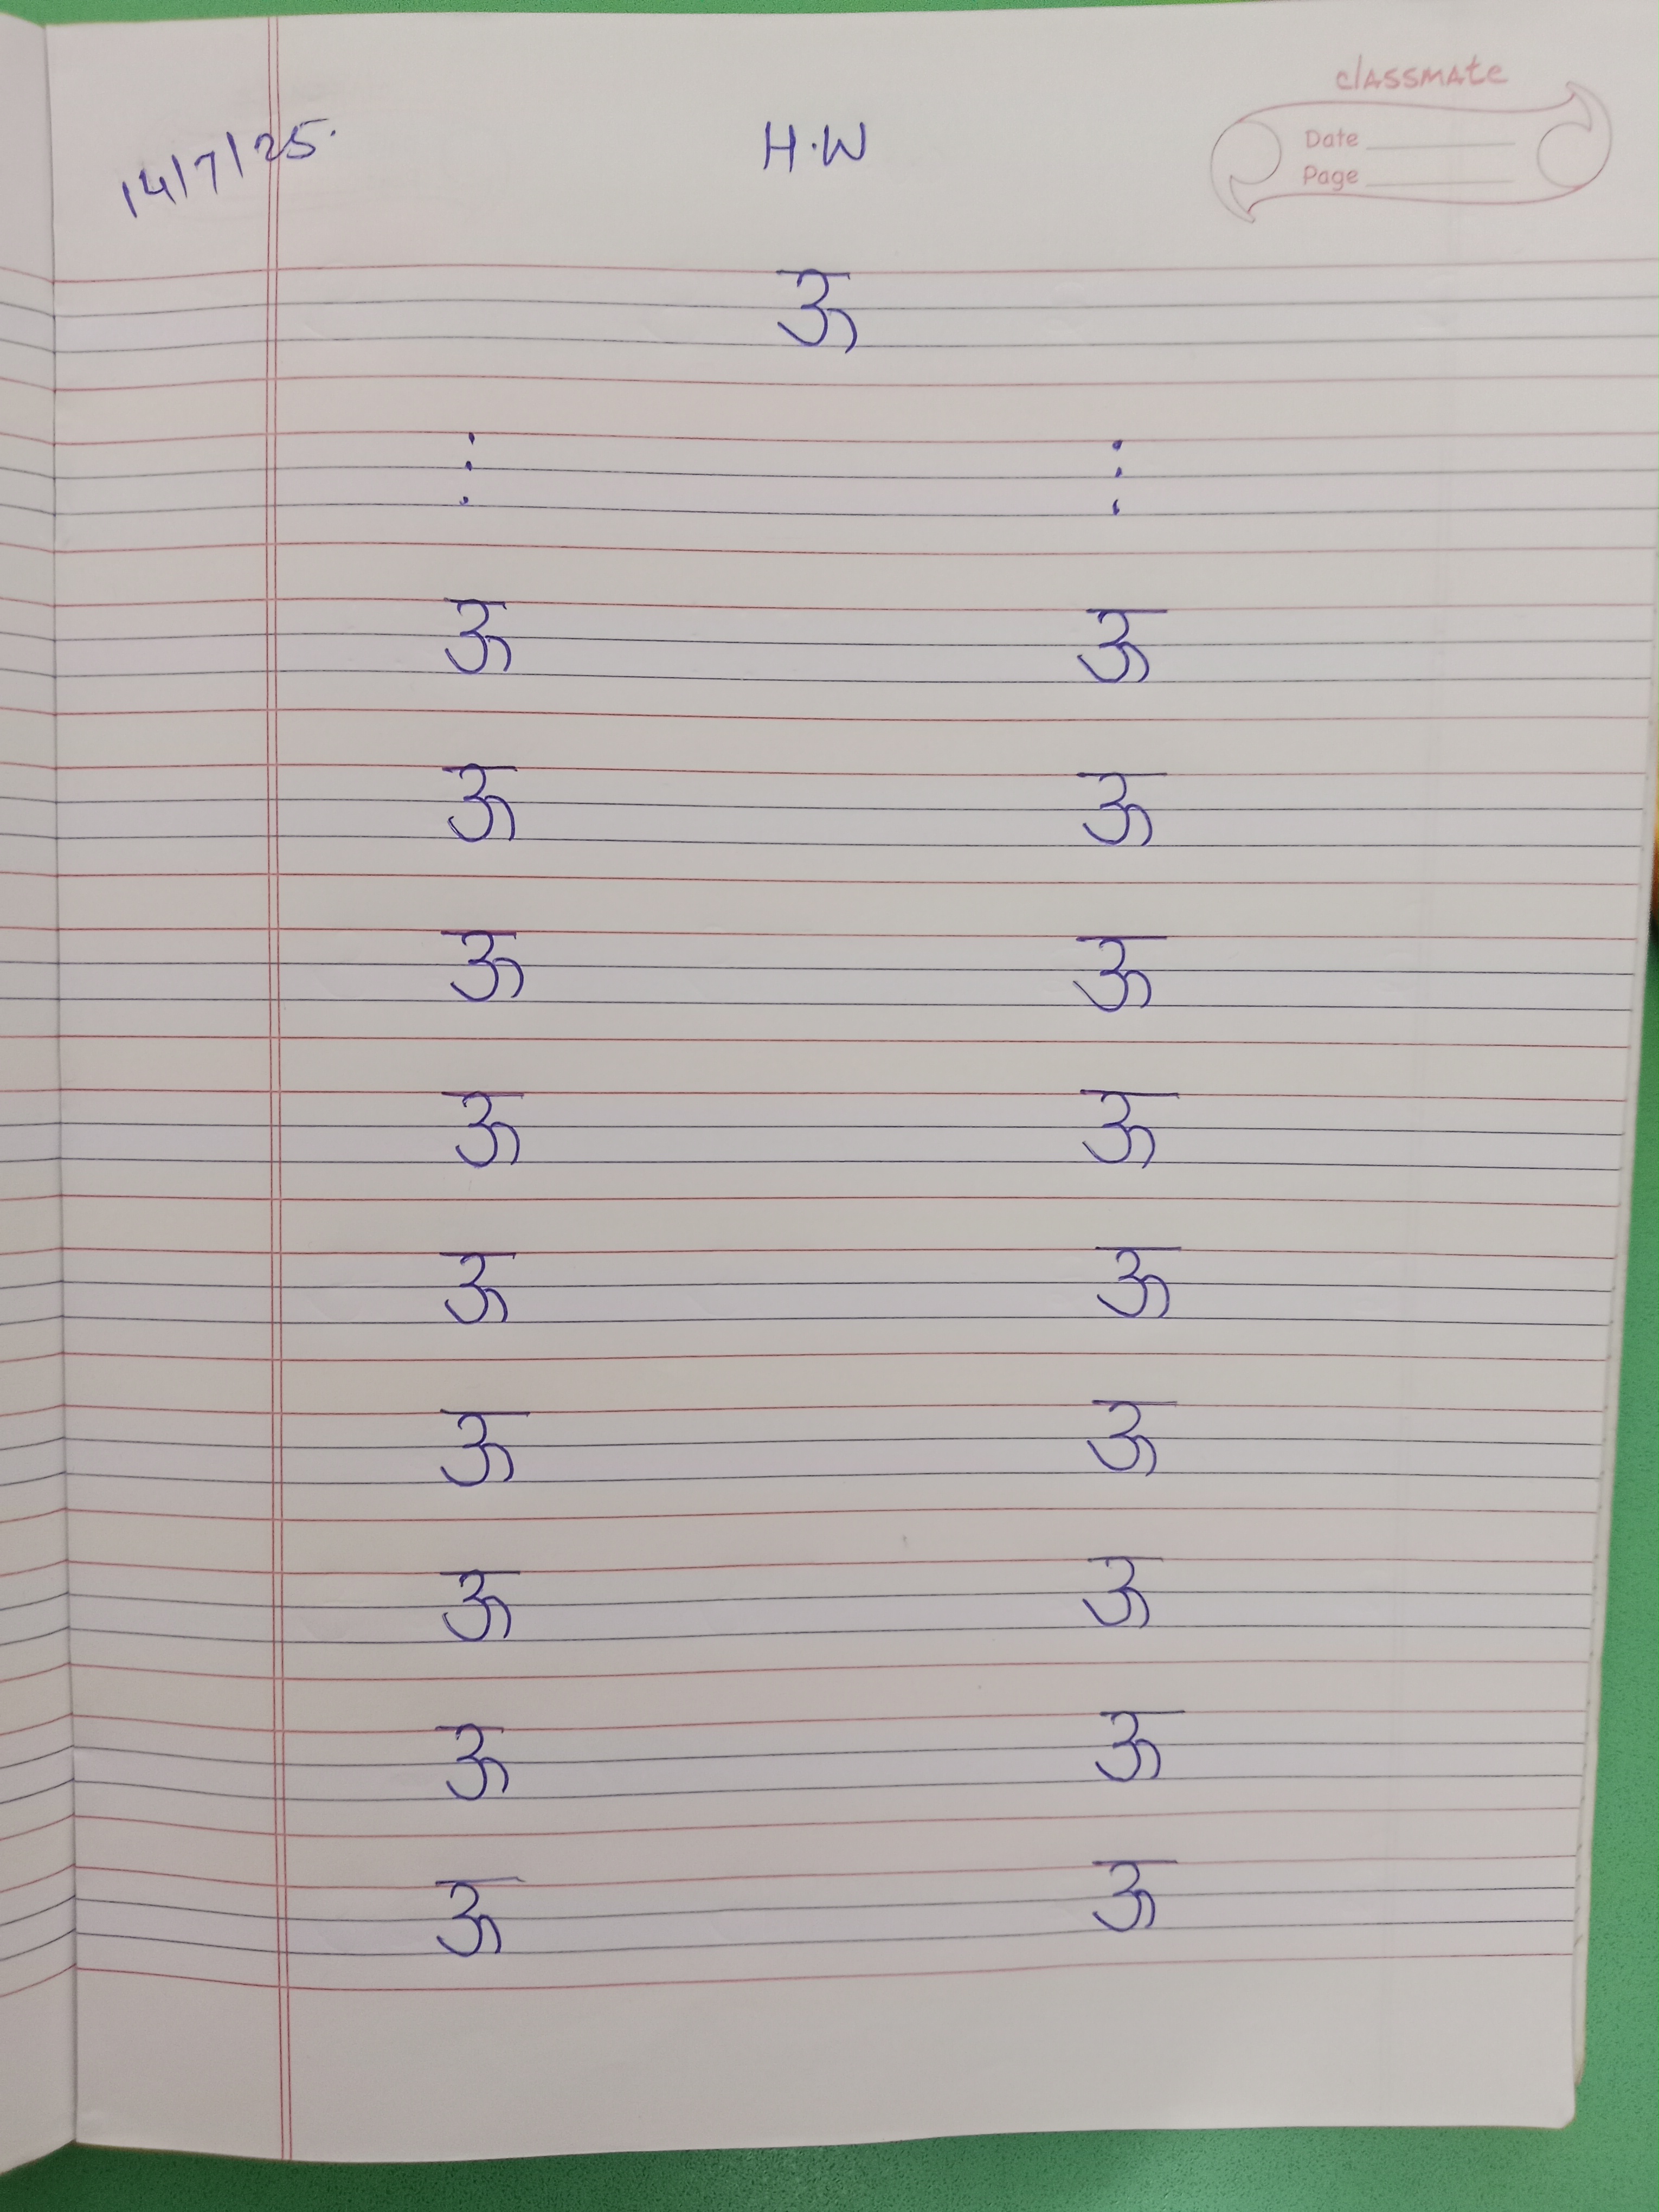 classmate
14/7/25. H.W Date
Page
ऊ
: :
. .
ऊ ऊ
ऊ ऊ
ऊ ऊ
ऊ ऊ
ऊ ऊ
ऊ ऊ
ऊ ऊ
ऊ ऊ
ऊ ऊ